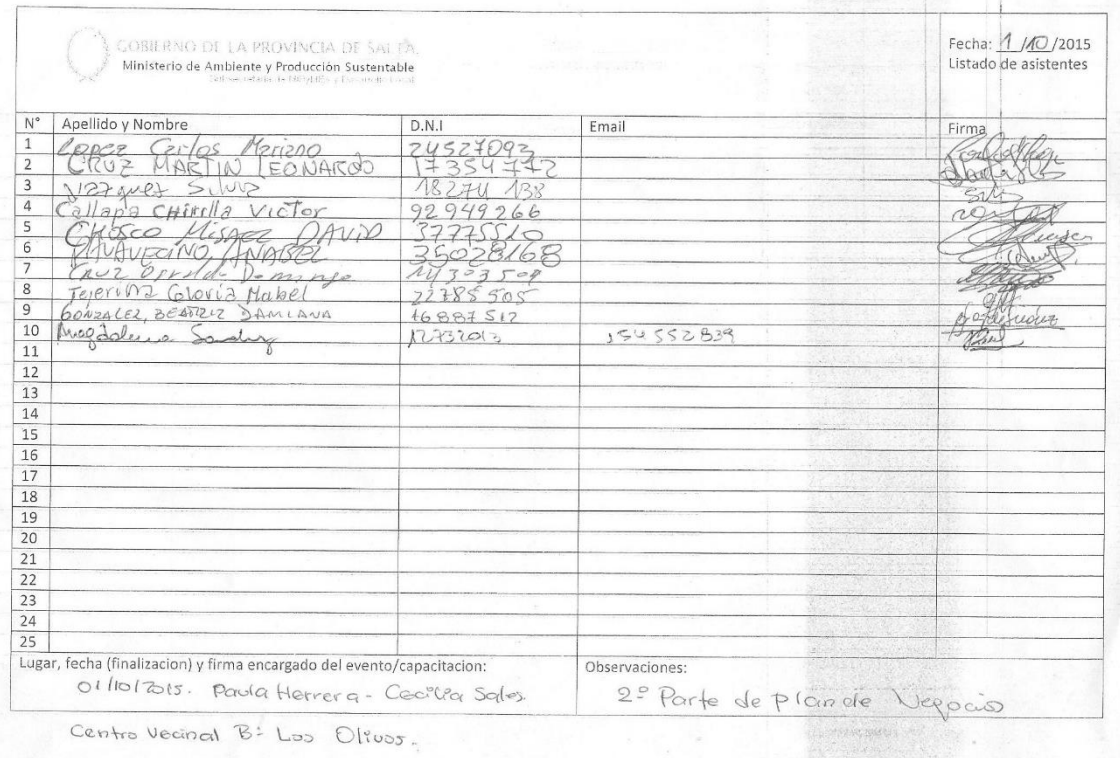 GOBIERNO DE LA PROVINCIA DE SALTA
Ministerio de Ambiente y Producción Sustentable
Fecha: 1/10/2015
Listado de asistentes
N° Apellido y Nombre D.N.I Email Firma
1 Lopez Carlos Mariano 24527093
2 CRUZ MARTIN LEONARDO 17354772
3 Silvia 18274 138
4 Callapa CHinilla VICTOR 92949266
5 CHOSCO Misael DAVID 37775510
6 ANABEL 35028168
7 Cruz Osvaldo Domingo 14303509
8 Tejerina Gloria Mabel 22785505
9 GONZALEZ, BEATRIZ DAMIANA 16887512
10 Magdalena 12732013 154552839
11
12
13
14
15
16
17
18
19
20
21
22
23
24
25
Lugar, fecha (finalizacion) y firma encargado del evento/capacitacion:
01/10/2015. Paula Herrera - Cecilia Sales.
Observaciones:
2º Parte de plan de Negocio
Centro Vecinal Bº Los Olivos.